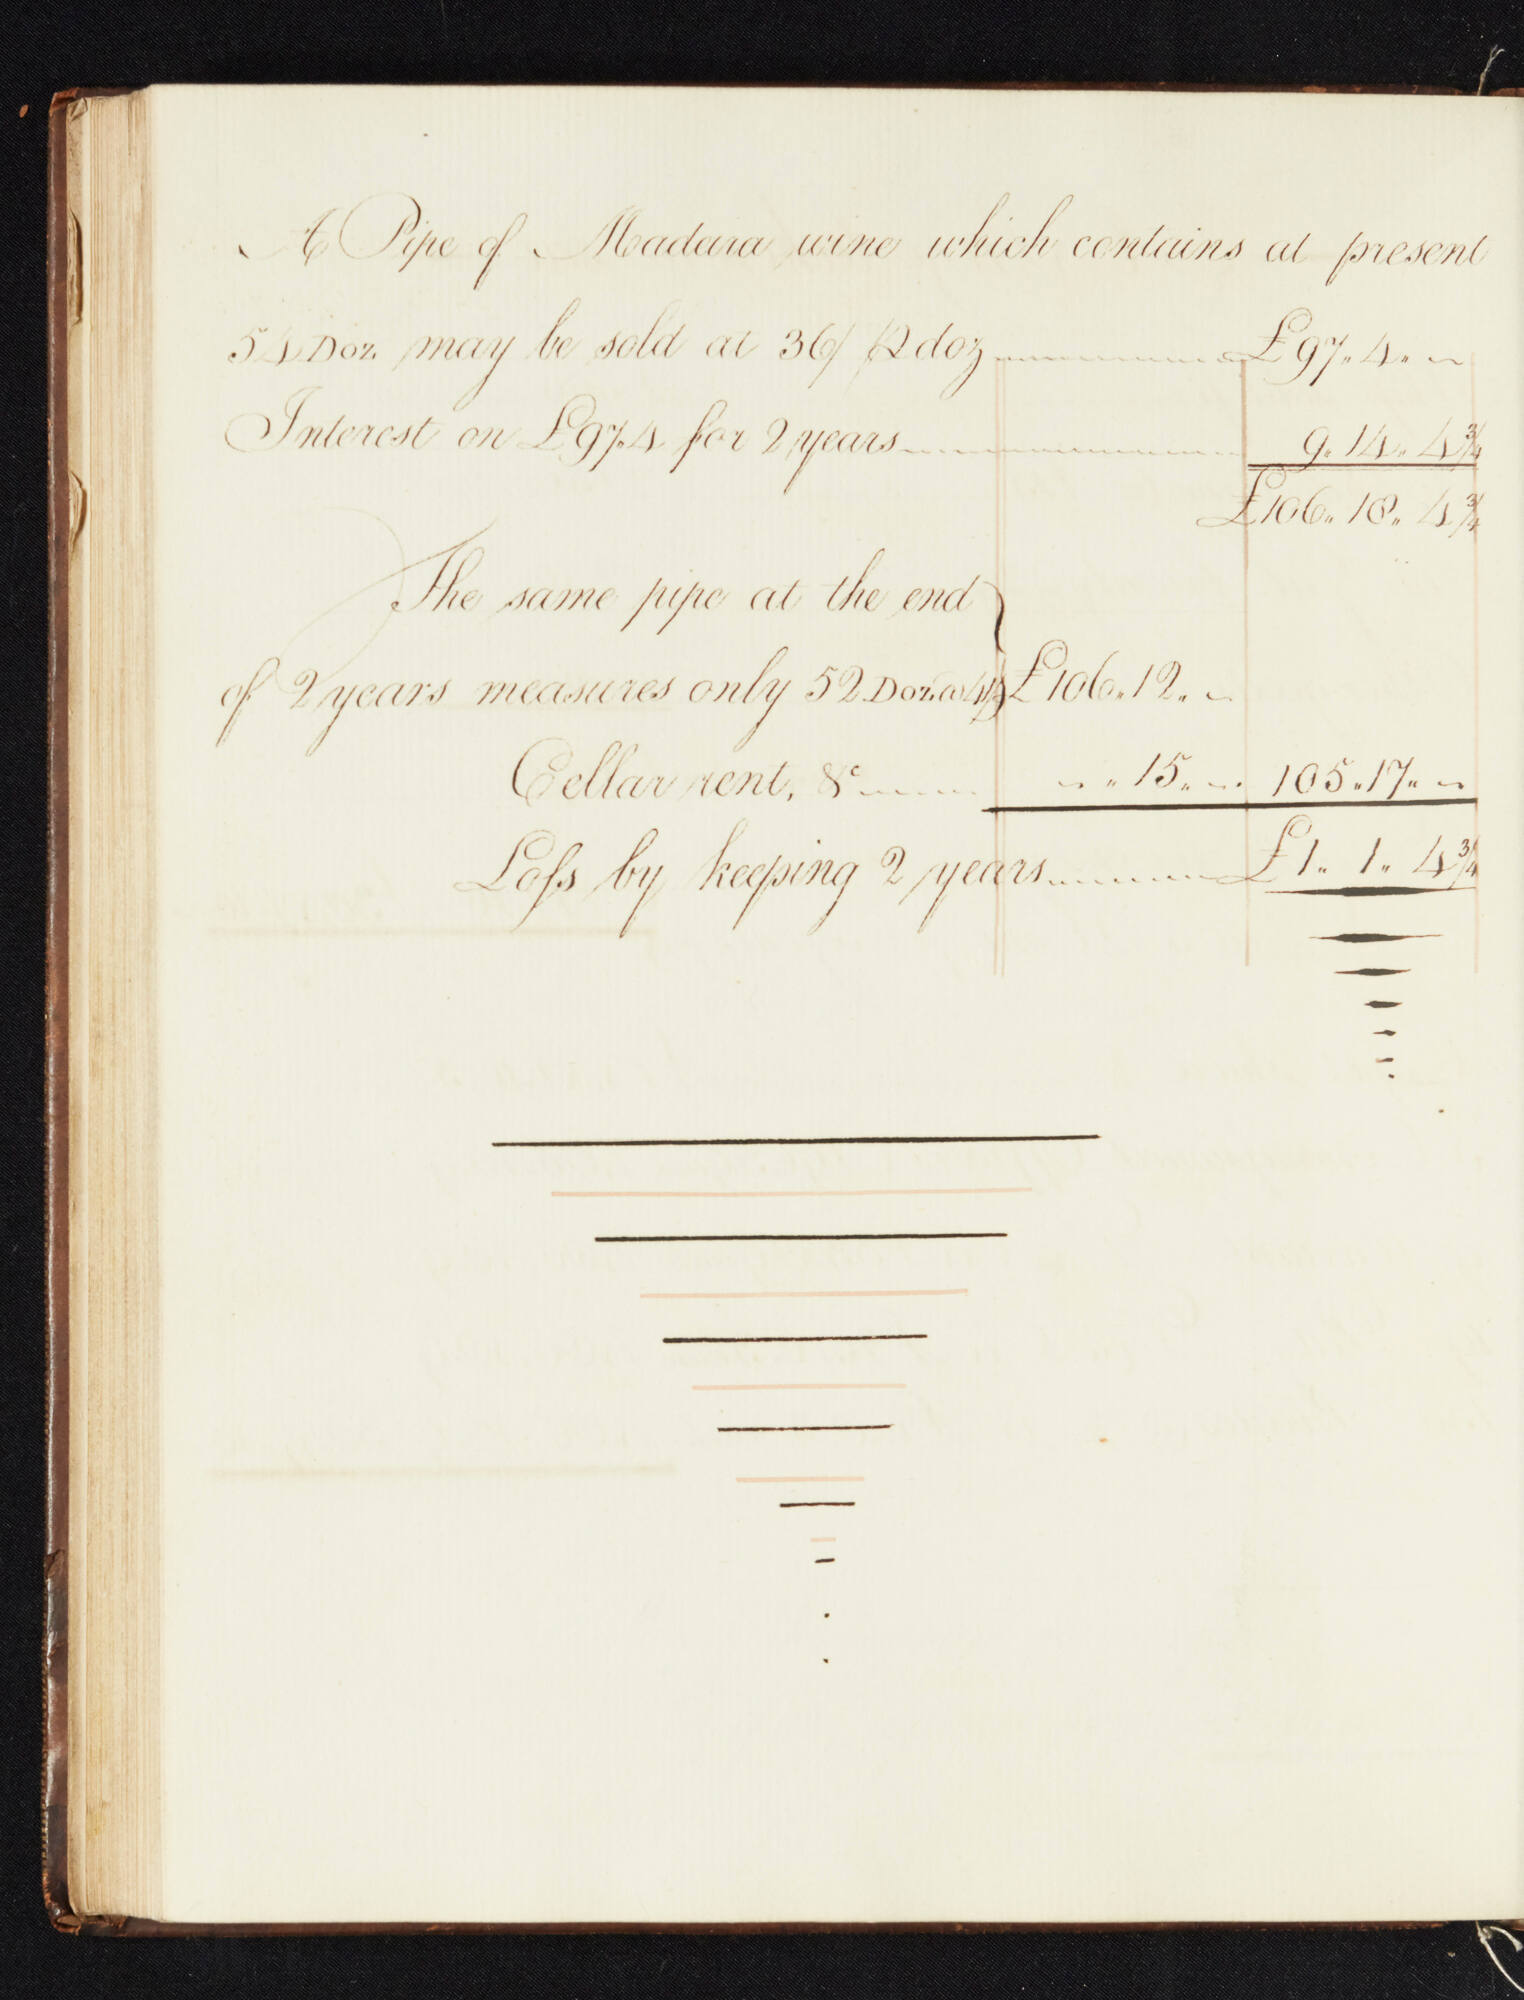 A Pipe of Madara wine which contains at present
54 Doz. may be sold at 36/ ⅌ doz £97„ 4„ ~
Interest on £97.4 for 2 years 9„ 14„ 4¾
£106„ 18„ 4¾
The same pipe at the end
of 2 years measures only 52 Doz. @ 41/ £106„ 12„ ~
Cellar rent, &c ~ „ 15„ ~ 105„ 17„ ~
Loſs by keeping 2 years £1„ 1„ 4¾